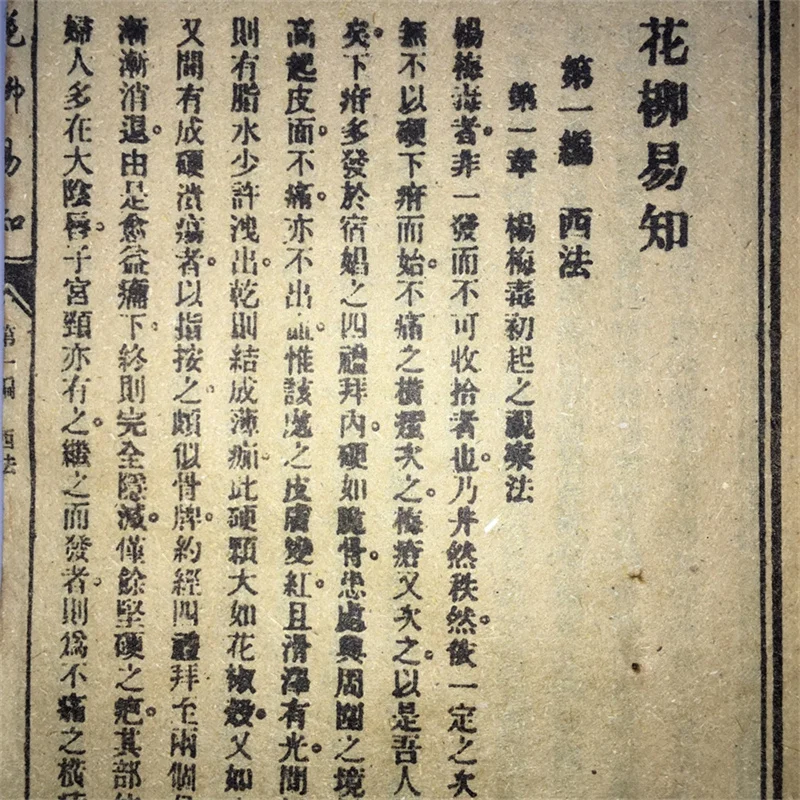 花柳易知
第一編　西法
第一章　楊梅毒初起之視察法
楊梅毒者。非一發而不可收拾者也。乃井然秩然。依一定之次
無不以硬下疳而始。不痛之橫痃次之。梅瘡又次之。以是吾人
矣。下疳多發於宿娼之四禮拜內。硬如脆骨。患處與周圍之境
高起皮面。不痛。亦不出血。惟該處之皮膚變紅。且滑澤有光。間
則有脂水少許洩出。乾則結成薄痂。此硬顆大如花椒殼。又如
又間有成硬潰瘍者。以指按之。頗似骨牌。約經四禮拜至兩個
漸漸消退。由是愈益痛下。終則完全隱滅。僅餘堅硬之疤。其部
婦人多在大陰唇。子宮頸亦有之。繼之而發者。則為不痛之橫
花柳易知
第一編　西法